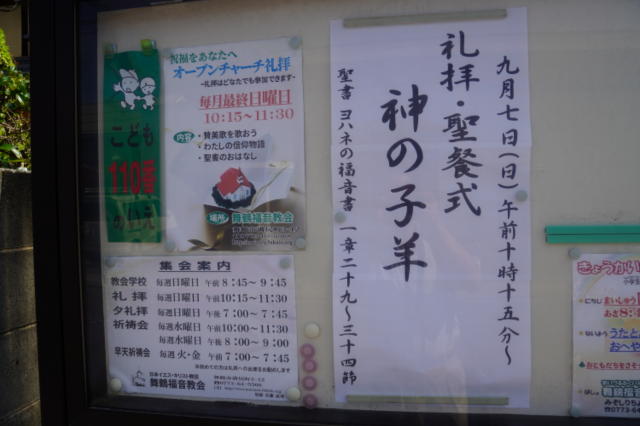 こども
110番
のいえ
祝福をあなたへ
オープンチャーチ礼拝
~礼拝はどなたでも参加できます~
毎月最終日曜日
10:15~11:30
内容
・賛美歌を歌おう
・わたしの信仰物語
・聖書のおはなし
場所 舞鶴福音教会
九月七日(日)午前十時十五分~
礼拝・聖餐式
神の子羊
聖書 ヨハネの福音書 一章二十九~三十四節
集会案内
教会学校 毎週日曜日 午前 8:45~9:45
礼拝 毎週日曜日 午前 10:15~11:30
夕礼拝 毎週日曜日 午後 7:00~7:45
祈祷会 毎週水曜日 午前 10:00~11:30
毎週水曜日 午後 8:00~9:00
早天祈祷会 毎週火・金 午前 7:00~7:45
日本イエス・キリスト教団
舞鶴福音教会
きょうかい
小学生
にちじ まいしゅう
あさ8:4
ないよう うたった
おへや
おともだちをさそっ
ばしょ
舞鶴福音
みそしりちょ
☎0773-64